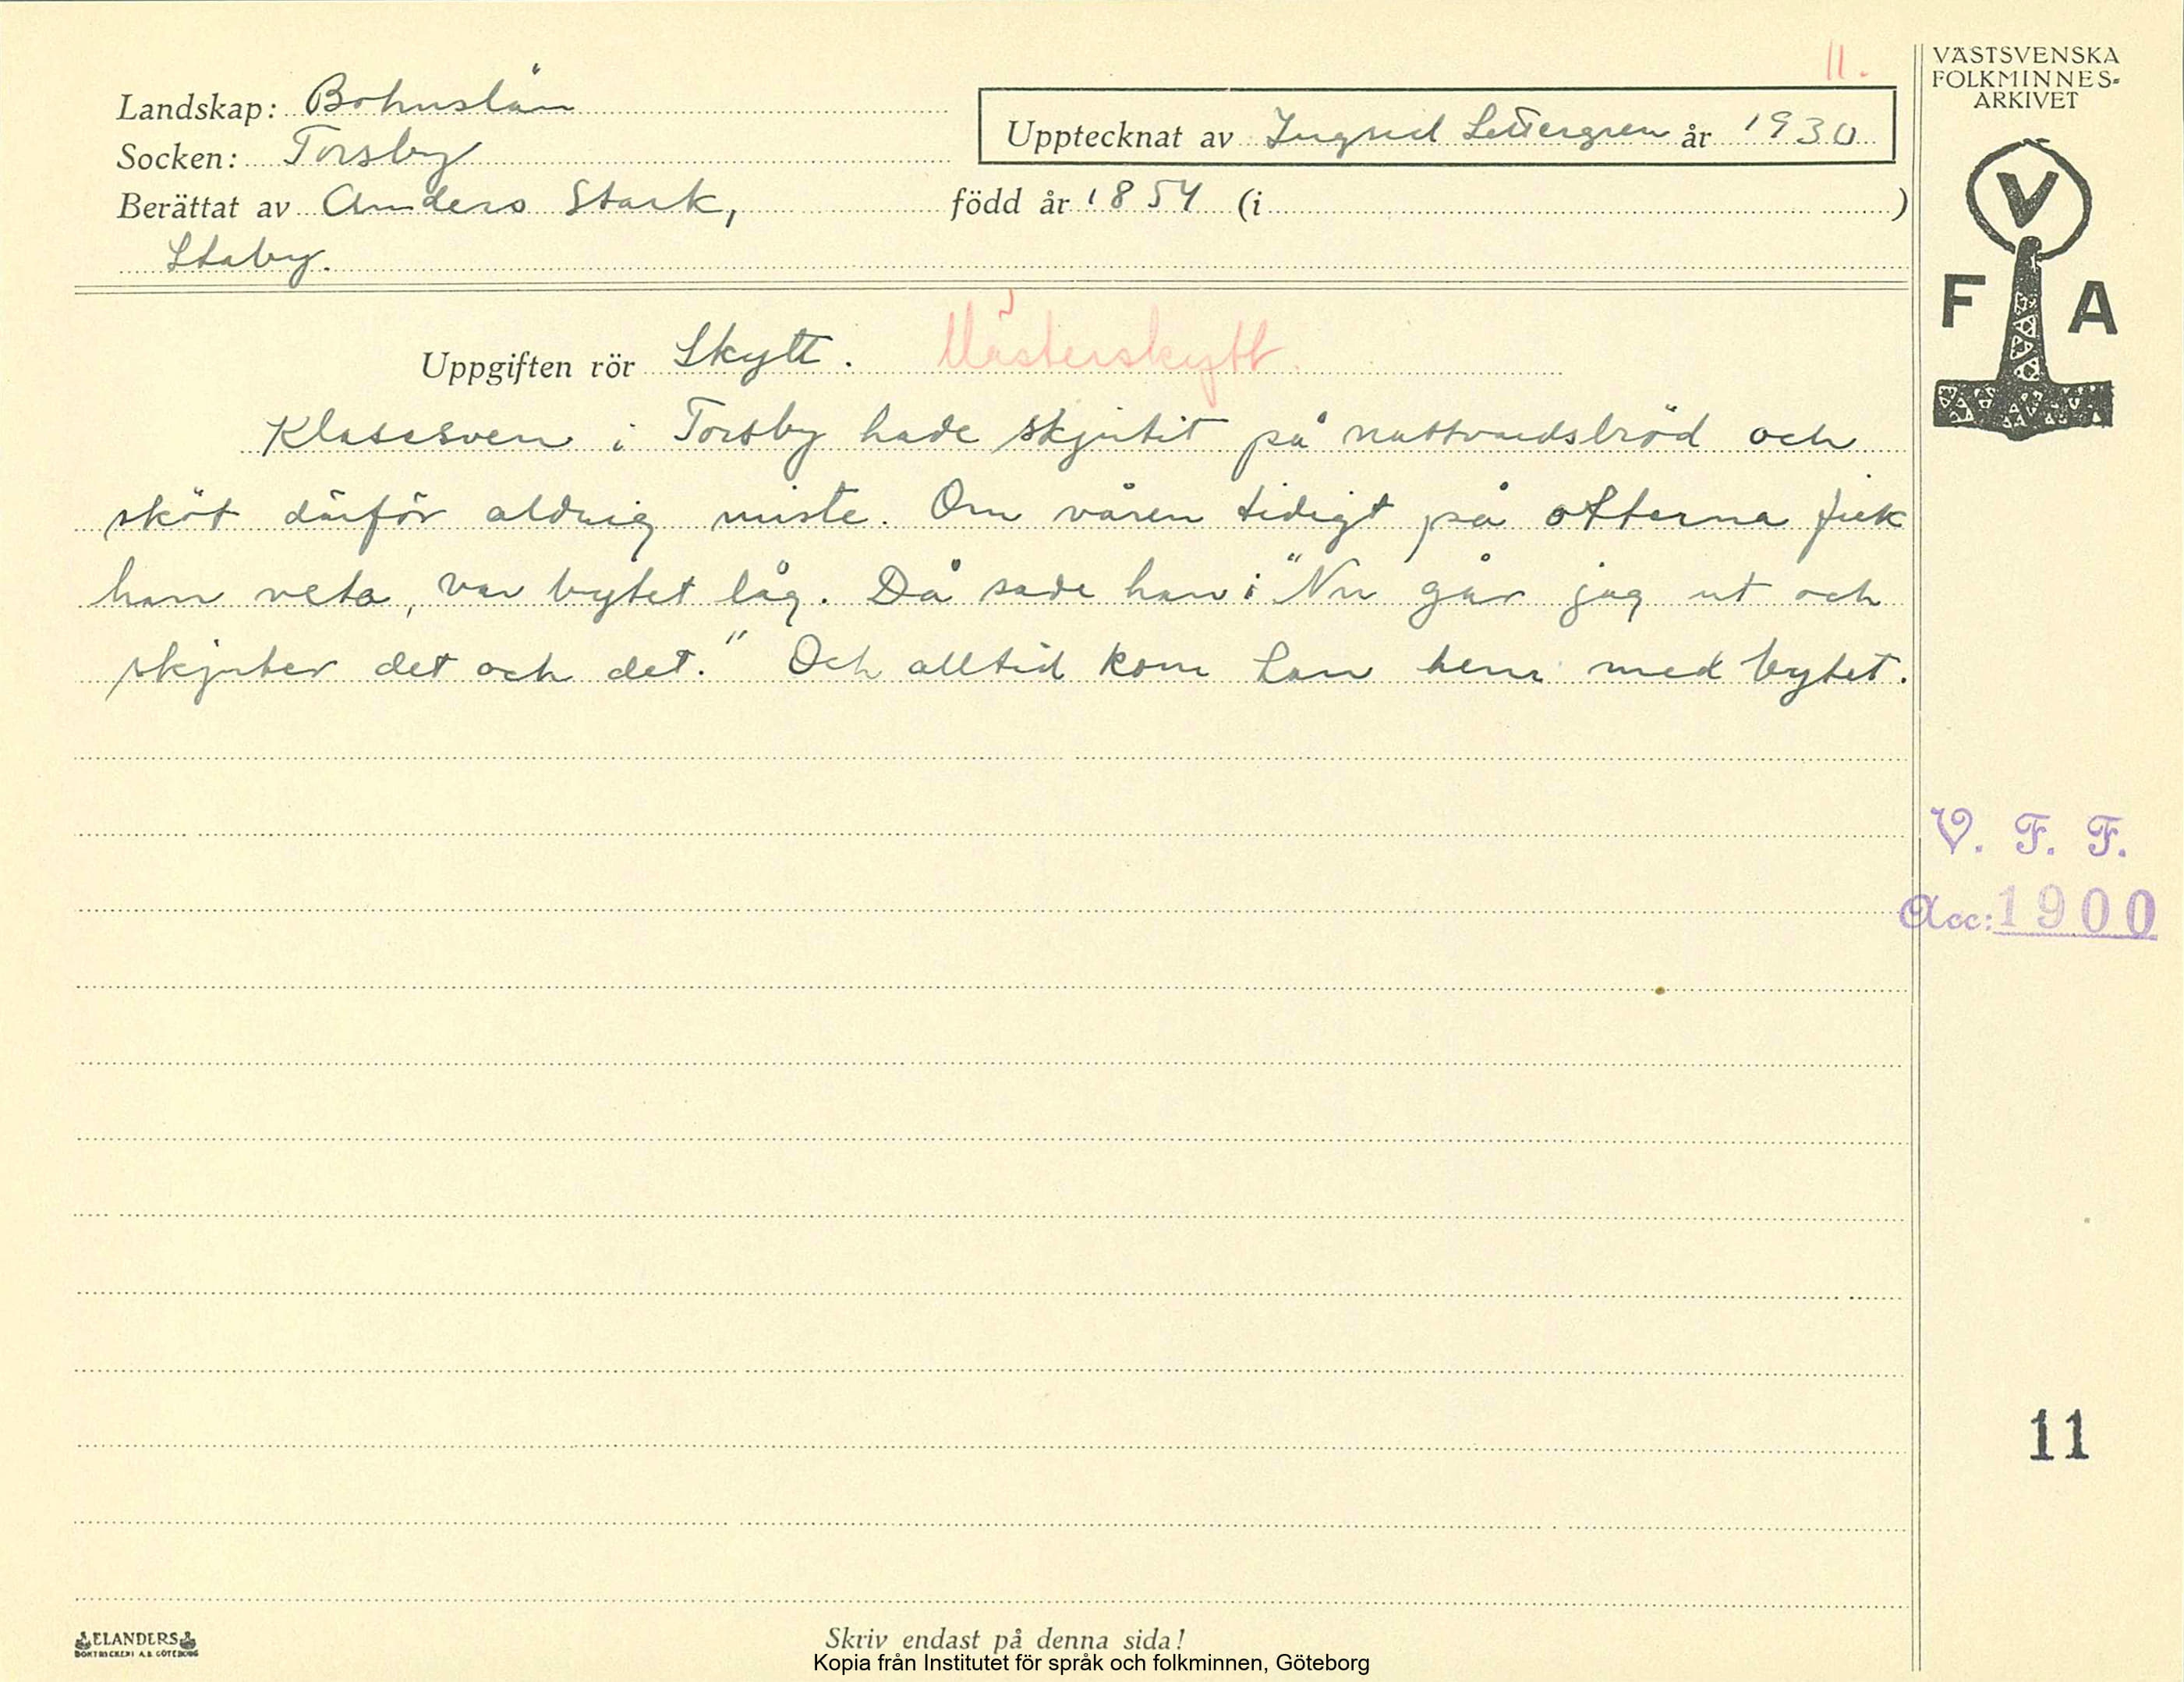 11.
VÄSTSVENSKA
FOLKMINNES-
ARKIVET
Landskap: Bohuslän
Upptecknat av Ingrid Settergren år 1930
Socken: Torsby
Berättat av Anders Stark, född år 1854 (i )
Staby.
V
F A
Uppgiften rör Skytt. Mästerskytt.
Klasesven i Torsby hade skjutit på nattvardsbröd och
sköt därför aldrig miste. Om våren tidigt på ottorna fick
han veta, var bytet låg. Då sade han: "Nu går jag ut och
skjuter det och det." Och alltid kom han hem med bytet.
V. F. F.
Acc: 1900
11
ELANDERS
BOKTRYCKERI A.B. GÖTEBORG
Skriv endast på denna sida!
Kopia från Institutet för språk och folkminnen, Göteborg